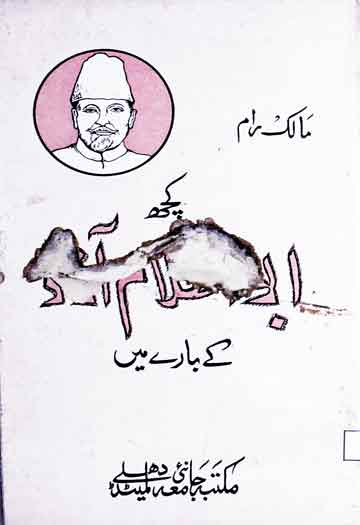 مالک رام
کچھ
ابوالکلام آزاد
کے بارے میں
مکتبہ جامعہ لمیٹڈ نئی دہلی